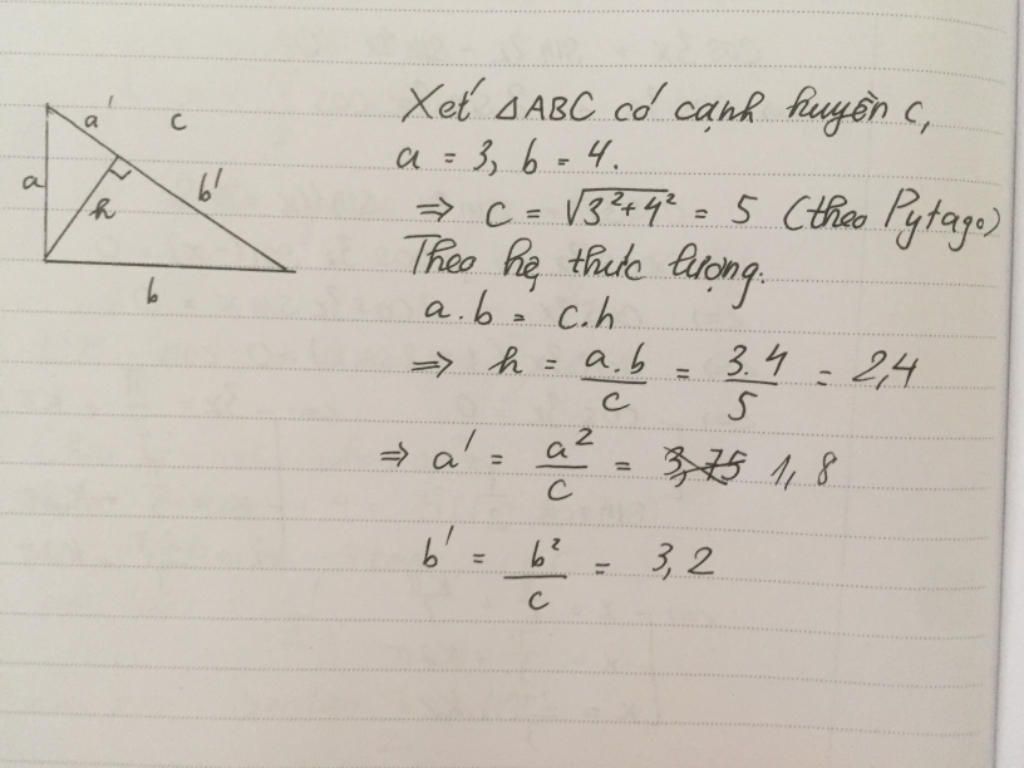 a' c
a
h
b'
b
Xét ΔABC có cạnh huyền c,
a = 3, b = 4.
⇒ c = √3²+4² = 5 (theo Pytago)
Theo hệ thức lượng:
a.b = c.h
⇒ h = a.b/c = 3.4/5 = 2,4
⇒ a' = a²/c = 3,75 1,8
b' = b²/c = 3,2